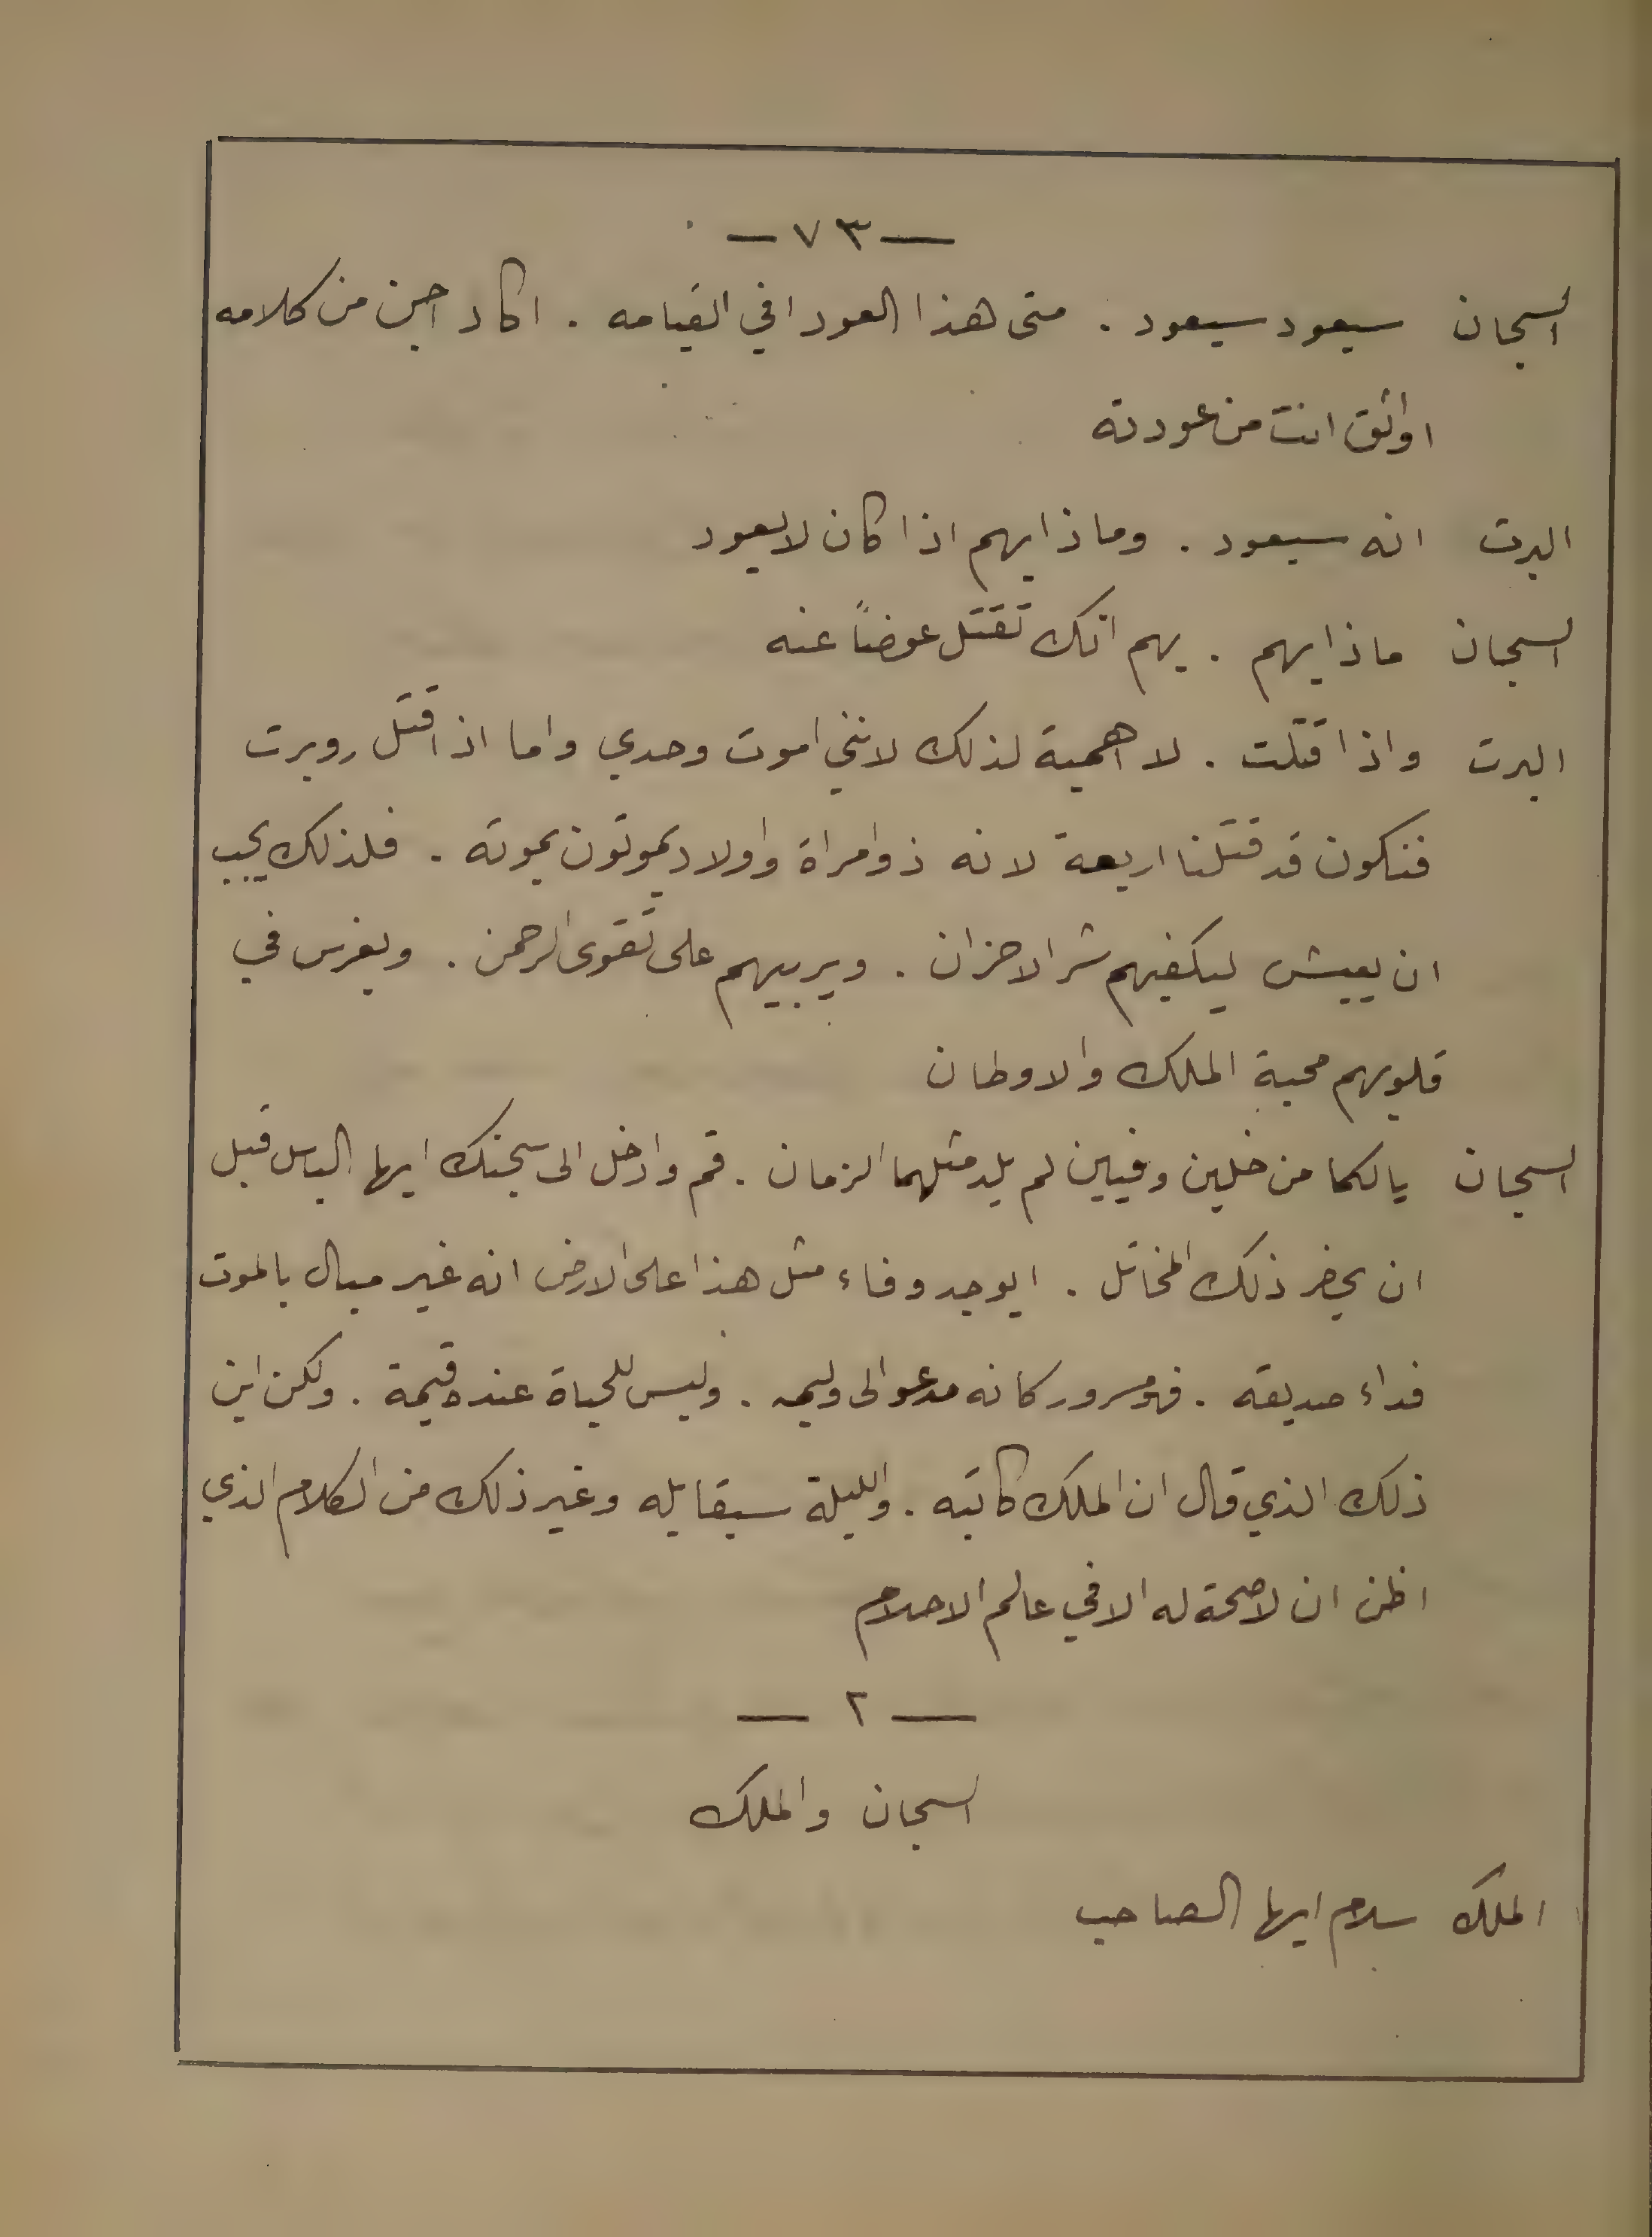 — ٧٣ —
السجان سيعود سيعود . متى هذا العود افي القيامه . اكاد اجن من كلامه
اواثق انت من عودته
البرت انه سيعود . وماذا يهم اذا كان لا يعود
السجان ماذا يهم . يهم انك تقتل عوضاً عنه
البرت واذا قتلت . لا اهمية لذلك لانني اموت وحدي واما اذا قتل روبرت
فنكون قد قتلنا اربعة لانه ذو امراة واولاد يموتون بموته . فلذلك يجب
ان يعيش ليكفيهم شر الاحزان . ويربيهم على تقوى الرحمن . ويغرس في
قلوبهم محبة الملك والاوطان
السجان يالكما من خلين وفيين لم يلد مثلهما الزمان . قم وادخل الى سجنك ايها الباسل قبل
ان يحضر ذلك المخاتل . ايوجد وفاء مثل هذا على الارض انه غير مبال بالموت
فداء صديقه . فهو مسرور كانه مدعو الى وليمه . وليس للحياة عنده قيمة . ولكن اين
ذلك الذي قال ان الملك كاتبه . والليلة سيقابله وغير ذلك من الكلام الذي
اظن ان لا صحة له الا في عالم الاحلام
— ٢ —
السجان والملك
الملك سلام ايها الصاحب